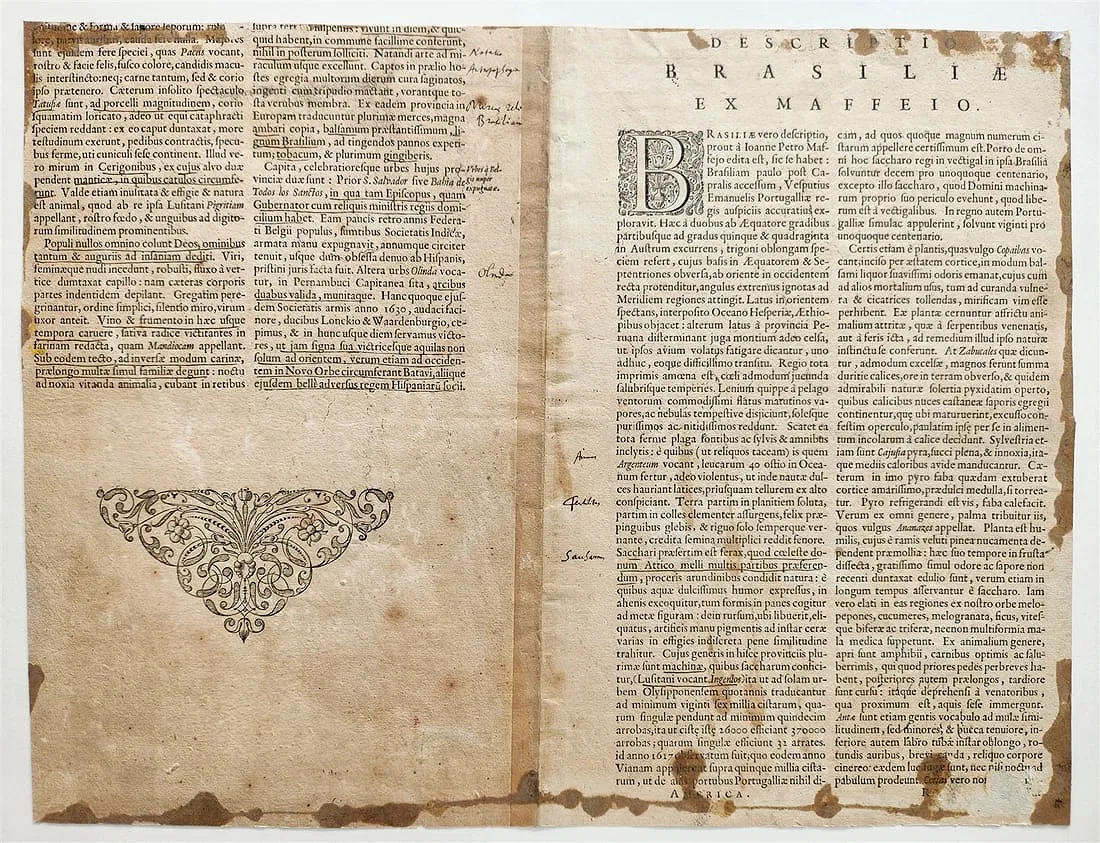 & forma & sapore leporum: rula
lore, parvis auribus, cauda fere nulla. Majores
sunt ejusdem fere speciei, quas Pacas vocant,
rostro & facie felis, fusco colore, candidis macu-
lis interstincto: neq; carne tantum, sed & corio
ipso prætenero. Cæterum insolito spectaculo
Tatusiæ sunt, ad porcelli magnitudinem, corio
squamatim loricato, adeo ut equi cataphracti
speciem reddant: ex eo caput duntaxat, more
testudinum exerunt, pedibus contractis, specu-
bus ferme, uti cuniculi sese continent. Illud ve-
ro mirum in Cerigonibus, ex cujus alvo duæ
pendent manticæ, in quibus catulos circumfe-
runt. Valde etiam inusitata & effigie & natura
est animal, quod ab re ipsa Lusitani Pigritiam
appellant, rostro fœdo, & unguibus ad digito-
rum similitudinem prominentibus.
Populi nullos omnino colunt Deos, ominibus
tantum & auguriis ad insaniam dediti. Viri,
feminæque nudi incedunt, robusti, fluxo à ver-
tice dumtaxat capillo: nam cæteras corporis
partes indentidem depilant. Gregatim pere-
grinantur, ordine simplici, silentio miro, virum
uxor anteit. Vino & frumento in hæc usque
tempora caruere, sativa radice victitantes in
farinam redacta, quam Mandiocam appellant.
Sub eodem tecto, ad inversæ modum carinæ,
prælongo multæ simul familiæ degunt: noctu
ad noxia vitanda animalia, cubant in retibus
suspensis: vivunt in diem, & quic-
quid habent, in commune facillime conferunt,
nihil in posterum solliciti. Natandi arte ad mi-
raculum usque excellunt. Captos in prælio ho-
stes egregia multorum dierum cura saginatos,
ingenti cum tripudio mactant, vorantque to-
sta verubus membra. Ex eadem provincia in
Europam traducuntur plurimæ merces, magna
ambari copia, balsamum præstantissimum, li-
gnum Brasilium, ad tingendos pannos experi-
tum; tobacum, & plurimum gingiberis.
Capita, celebratioresque urbes hujus pro-
vinciæ duæ sunt: Prior S. Salvador sive Bahia de
Todos los Sanctos, in qua tam Episcopus, quam
Gubernator cum reliquis ministris regiis domi-
cilium habet. Eam paucis retro annis Federa-
ti Belgii populus, sumtibus Societatis Indicæ,
armata manu expugnavit, annumque circiter
tenuit, usque dum obsessa denuo ab Hispanis,
pristini juris facta fuit. Altera urbs Olinda voca-
tur, in Pernambuci Capitanea sita, arcibus
duabus valida, munitaque. Hanc quoque ejus-
dem Societatis armis anno 1630, audaci faci-
more, ducibus Lonckio & Waardenburgio, ce-
pimus, & in hunc usque diem servamus victo-
res, ut jam signa sua victricesque aquilas non
solum ad orientem, verum etiam ad occiden-
tem in Novo Orbe circumferant Batavi, aliique
ejusdem belli adversus regem Hispaniarū socii.
Olinda
DESCRIPTIO
BRASILIÆ
EX MAFFEIO.
BRASILIÆ vero descriptio,
prout à Ioanne Petro Maf-
feio edita est, sic se habet:
Brasiliam paulo post Ca-
pralis accessum, Vesputius
Emanuelis Portugalliæ re-
gis auspiciis accuratius ex-
ploravit. Hæc à duobus ab Æquatore gradibus
partibusque ad gradus quinque & quadraginta
in Austrum excurrens, trigoni oblongam spe-
ciem refert, cujus basis in Æquatorem & Se-
ptentriones obversa, ab oriente in occidentem
recta protenditur, angulus extremus ignotas ad
Meridiem regiones attingit. Latus in orientem
spectans, interposito Oceano Hesperiæ, Æthio-
pibus objacet: alterum latus à provincia Pe-
ruana disterminant juga montium adeo celsa,
ut ipsos avium volatus fatigare dicantur, uno
adhuc, eoque difficili transitu. Regio tota
imprimis amœna est, cœli admodum jucunda
salubrisque temperies. Lenium quippe à pelago
ventorum commodissimi flatus matutinos va-
pores, ac nebulas tempestive disjiciunt, solesque
purissimos ac nitidissimos reddunt. Scatet ea
tota ferme plaga fontibus ac sylvis & amnibus
inclytis: è quibus (ut reliquos taceam) is quem
Argenteum vocant, leucarum 40 ostio in Ocea-
num fertur, adeo violentus, ut inde nautæ dul-
ces hauriant latices, priusquam tellurem ex alto
conspiciant. Terra partim in planitiem soluta,
partim in colles clementer assurgens, felix præ-
pinguibus glebis, & riguo solo semperque ver-
nante, credita semina multiplici reddit fenore.
Sacchari præsertim est ferax, quod cœleste do-
num Attico melli multis partibus præferen-
dum, proceris arundinibus condidit natura: è
quibus aquæ dulcissimus humor expressus, in
ahenis excoquitur, tum formis in panes cogitur
ad metæ figuram: dein rursum, ubi libuerit, eli-
quatus, artificis manu pigmenti ad instar ceræ
varias in effigies indiscreta pene similitudine
trahitur. Cujus generis in hisce provinciis plu-
rimæ sunt machinæ, quibus saccharum confici-
tur, (Lusitani vocant Ingenios) ita ut ad solam ur-
bem Olysipponensem quotannis traducantur
ad minimum viginti sex millia cistarum, qua-
rum singulæ pendunt ad minimum quindecim
arrobas; ita ut cistę istę 26000 efficiant 370000
arrobas; quarum singulæ efficiunt 32 arrates.
id anno 1617 observatum fuit; quo eodem anno
Vianam appulerunt supra quinque millia cista-
rum, ut de aliis portubus Portugalliæ nihil di-
cam, ad quos quoque magnum numerum ci-
starum appellere certissimum est. Porro de om-
ni hoc saccharo regi in vectigal in ipsa Brasilia
solvuntur decem pro unoquoque centenario,
excepto illo saccharo, quod Domini machina-
rum proprio suo periculo evehunt, quod libe-
rum est à vectigalibus. In regno autem Portu-
galliæ simulac appulerint, solvunt viginti pro
unoquoque centenario.
Certis etiam è plantis, quas vulgo Copaibas vo-
cant, inciso per æstatem cortice, in modum bal-
sami liquor suavissimi odoris emanat, cujus cum
ad alios mortalium usus, tum ad curanda vulne-
ra & cicatrices tollendas, mirificam vim esse
perhibent. Ex plantæ cernuntur affrictu ani-
malium attritæ, quæ à serpentibus venenatis,
aut à feris icta, ad remedium illud ipso naturæ
instinctu se conferunt. At Zabucales quæ dicun-
tur, admodum excelsæ, magnos ferunt summa
duritie calices, ore in terram obverso, & quidem
admirabili naturæ solertia pyxidatim operto,
quibus calicibus nuces castaneæ saporis egregii
continentur, quę ubi maturuerint, excusso con-
festim operculo, paulatim ipsę per se in alimen-
tum incolarum à calice decidunt. Sylvestria et-
iam sunt Cajusia pyra, succi plena, & innoxia, ita-
que mediis caloribus avide manducantur. Cæ-
terum in imo pyro faba quædam extuberat
cortice amarissimo, prædulci medulla, si torrea-
tur. Pyro refrigerandi est vis, faba calefacit.
Verum ex omni genere, palma tribuitur iis,
quos vulgus Ananazes appellat. Planta est hu-
milis, cujus è ramis veluti pineæ nucamenta de-
pendent præmollia: hæc suo tempore in frusta
dissecta, gratissimo simul odore ac sapore non
recenti duntaxat edulio sunt, verum etiam in
longum tempus asservantur è saccharo. Iam
vero elati in eas regiones ex nostro orbe melo-
pepones, cucumeres, melogranata, ficus, vites-
que biferæ ac triferæ, necnon multiformia ma-
la medica suppetunt. Ex animalium genere,
apri sunt amphibii, carnibus optimis ac salu-
berrimis, qui quod priores pedes perbreves ha-
bent, posteriores autem prælongos, tardiore
sunt cursu: itaque deprehensi à venatoribus,
qua proximum est, aquis sese immergunt.
Antæ sunt etiam gentis vocabulo ad mulæ simi-
litudinem, sed minores, & bucca tenuiore, in-
feriore autem labro tubæ instar oblongo, ro-
tundis auribus, brevi cauda, reliquo corpore
cinereo: exedem lucifugæ sunt, nec nisi noctu ad
pabulum prodeunt. Cotias vero
AMERICA.